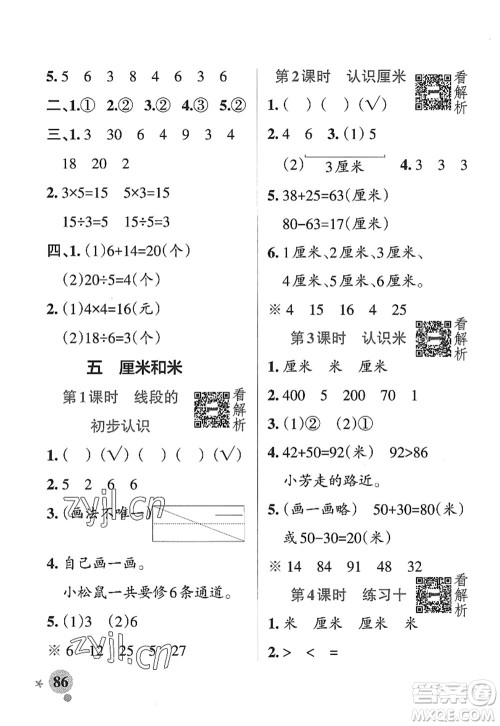 5. 5 6 3 8 4 5 6
二、1.① 2.② 3.① 4.② 5.②
三、1. 3 30 4 6 9 3 4
18 20 2
2. 3×5=15 5×3=15
15÷3=5 15÷5=3
四、1. (1)6+14=20(个)
(2)20÷5=4(个)
2. (1)4×4=16(元)
(2)18÷6=3(个)
五 厘米和米
第1课时 线段的
初步认识
看解析
1. ( ) (√) ( ) (√)
2. 5 2 6 6
3. (画法不唯一)
4. 自己画一画。
小松鼠一共要修6条通道。
5. (1)3 (2)6
※ 6 10 15 27
zyjl.cn
86
第2课时 认识厘米
看解析
1. ( ) ( ) (√)
2. 4 6 3. (1)5
(2) 3厘米 4. 3 3 3
5. 38+25=63(厘米)
80-63=17(厘米)
6. 1厘米、2厘米、3厘米、
4厘米、5厘米、6厘米。
※ 4 15 16 4 25
第3课时 认识米
看解析
1. 厘米 米 厘米 米
2. 400 5 700 1
3. (1)② (2)①
4. 42+50=92(米) 92>86
小芳走的路近。
5. (画一画略) 50+30=80(米)
50-30=20(米)
※ 14 84 91 48 32
第4课时 练习十
看解析
1. 米 厘米 厘米 米
2. > < =
zyjl.cn
答案圈
MXQE.COM